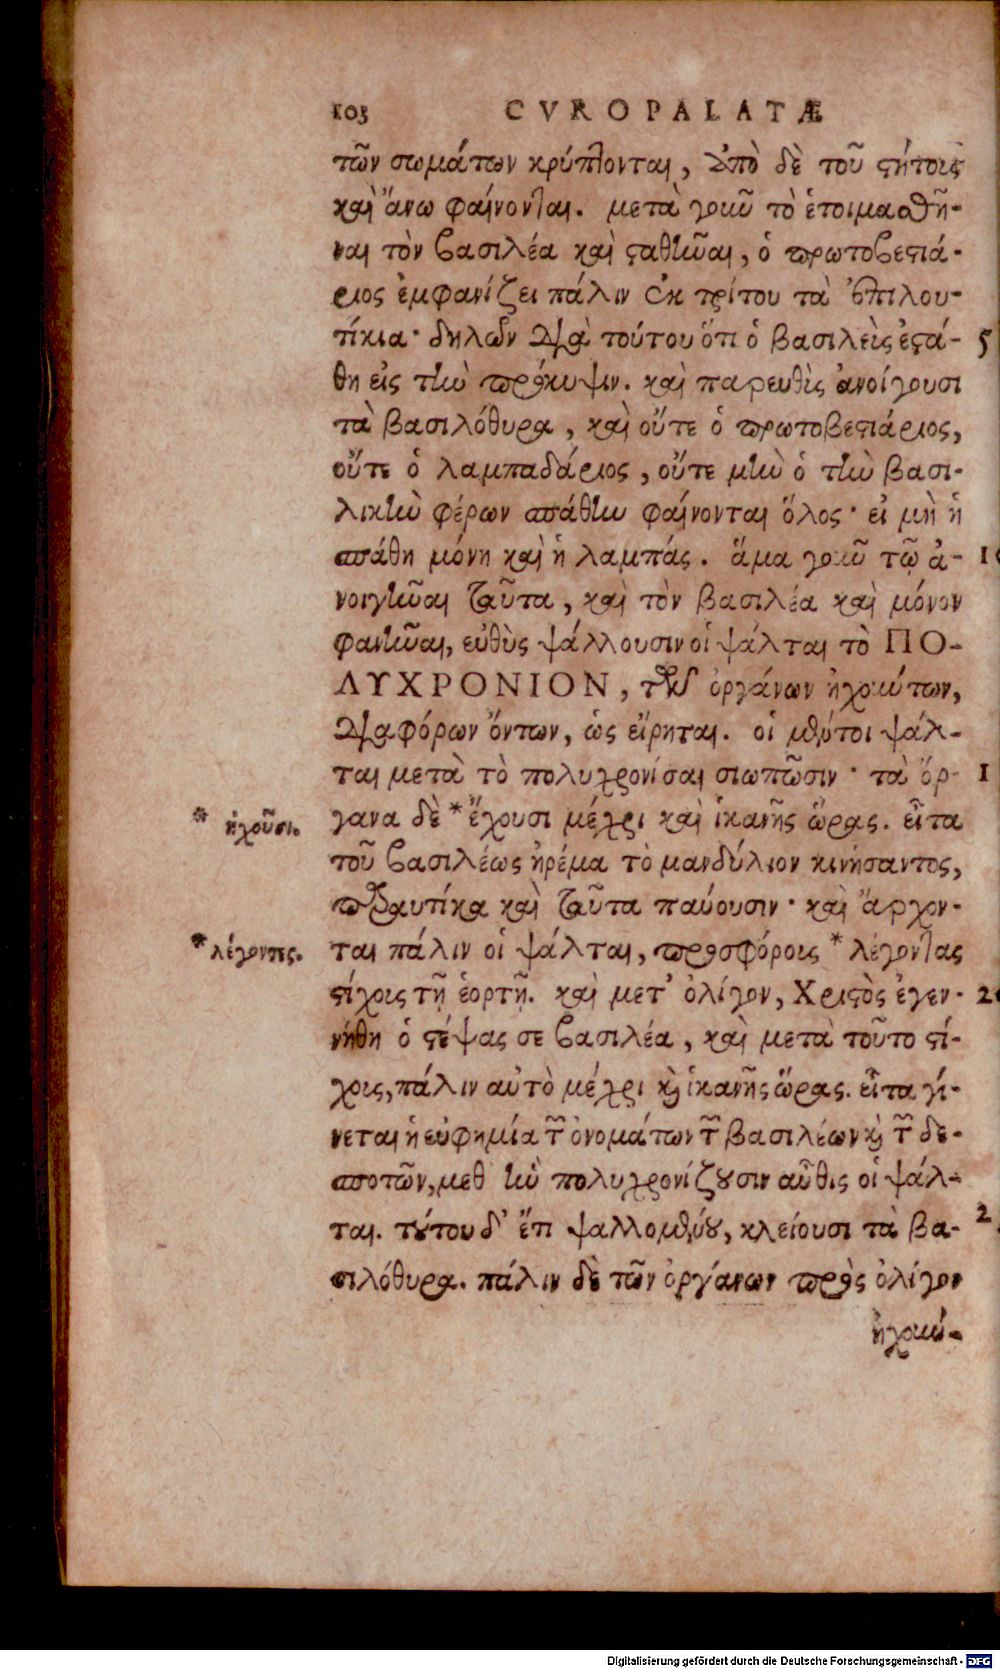 103 CVROPALATÆ
τῶν σωμάτων κρύπτονται, ἀπὸ δὲ τοῦ στήθους
καὶ ἄνω φαίνονται. μετὰ γοῦν τὸ ἑτοιμασθῆ-
ναι τὸν βασιλέα καὶ σταθῆναι, ὁ πρωτοβεστιά-
ριος ἐμφανίζει πάλιν ἐκ τρίτου τὰ ἐπιλου-
τίκια· δηλῶν διὰ τούτου ὅτι ὁ βασιλεὺς ἐστά- 5
θη εἰς τὴν πρόκυψιν. καὶ παρευθὺς ἀνοίγουσι
τὰ βασιλόθυρα, καὶ οὔτε ὁ πρωτοβεστιάριος,
οὔτε ὁ λαμπαδάριος, οὔτε μὴν ὁ τὴν βασι-
λικὴν φέρων σπάθην φαίνονται ὅλος· εἰ μὴ ἡ
σπάθη μόνη καὶ ἡ λαμπάς. ἅμα γοῦν τῷ ἀ- 1
νοιγῆναι ταῦτα, καὶ τὸν βασιλέα καὶ μόνον
φανῆναι, εὐθὺς ψάλλουσιν οἱ ψάλται τὸ ΠΟ-
ΛΥΧΡΟΝΙΟΝ, τῶν ὀργάνων ἠχούντων,
διαφόρων ὄντων, ὡς εἴρηται. οἱ μέντοι ψάλ-
ται μετὰ τὸ πολυχρονίσαι σιωπῶσιν· τὰ ὄρ- 1
γανα δὲ * ἔχουσι μέχρι καὶ ἱκανῆς ὥρας. εἶτα
* ἠχοῦσι.
τοῦ βασιλέως ἠρέμα τὸ μανδύλιον κινήσαντος,
παραυτίκα καὶ ταῦτα παύουσιν· καὶ ἄρχον-
ται πάλιν οἱ ψάλται, προσφόροις * λέγοντας
* λέγοντες.
στίχοις τῇ ἑορτῇ. καὶ μετ' ὀλίγον, Χριστὸς ἐγεν- 2
νήθη ὁ στέψας σε βασιλέα, καὶ μετὰ τοῦτο στί-
χοις, πάλιν αὐτὸ μέχρι καὶ ἱκανῆς ὥρας. εἶτα γί-
νεται ἡ εὐφημία τῶν ὀνομάτων τῶν βασιλέων καὶ τῶν δε-
σποτῶν, μεθ' ἣν πολυχρονίζουσιν αὖθις οἱ ψάλ-
ται. τούτου δ' ἔτι ψαλλομένου, κλείουσι τὰ βα- 2
σιλόθυρα. πάλιν δὲ τῶν ὀργάνων πρὸς ὀλίγον
ἠχούν-
Digitalisierung gefördert durch die Deutsche Forschungsgemeinschaft - DFG